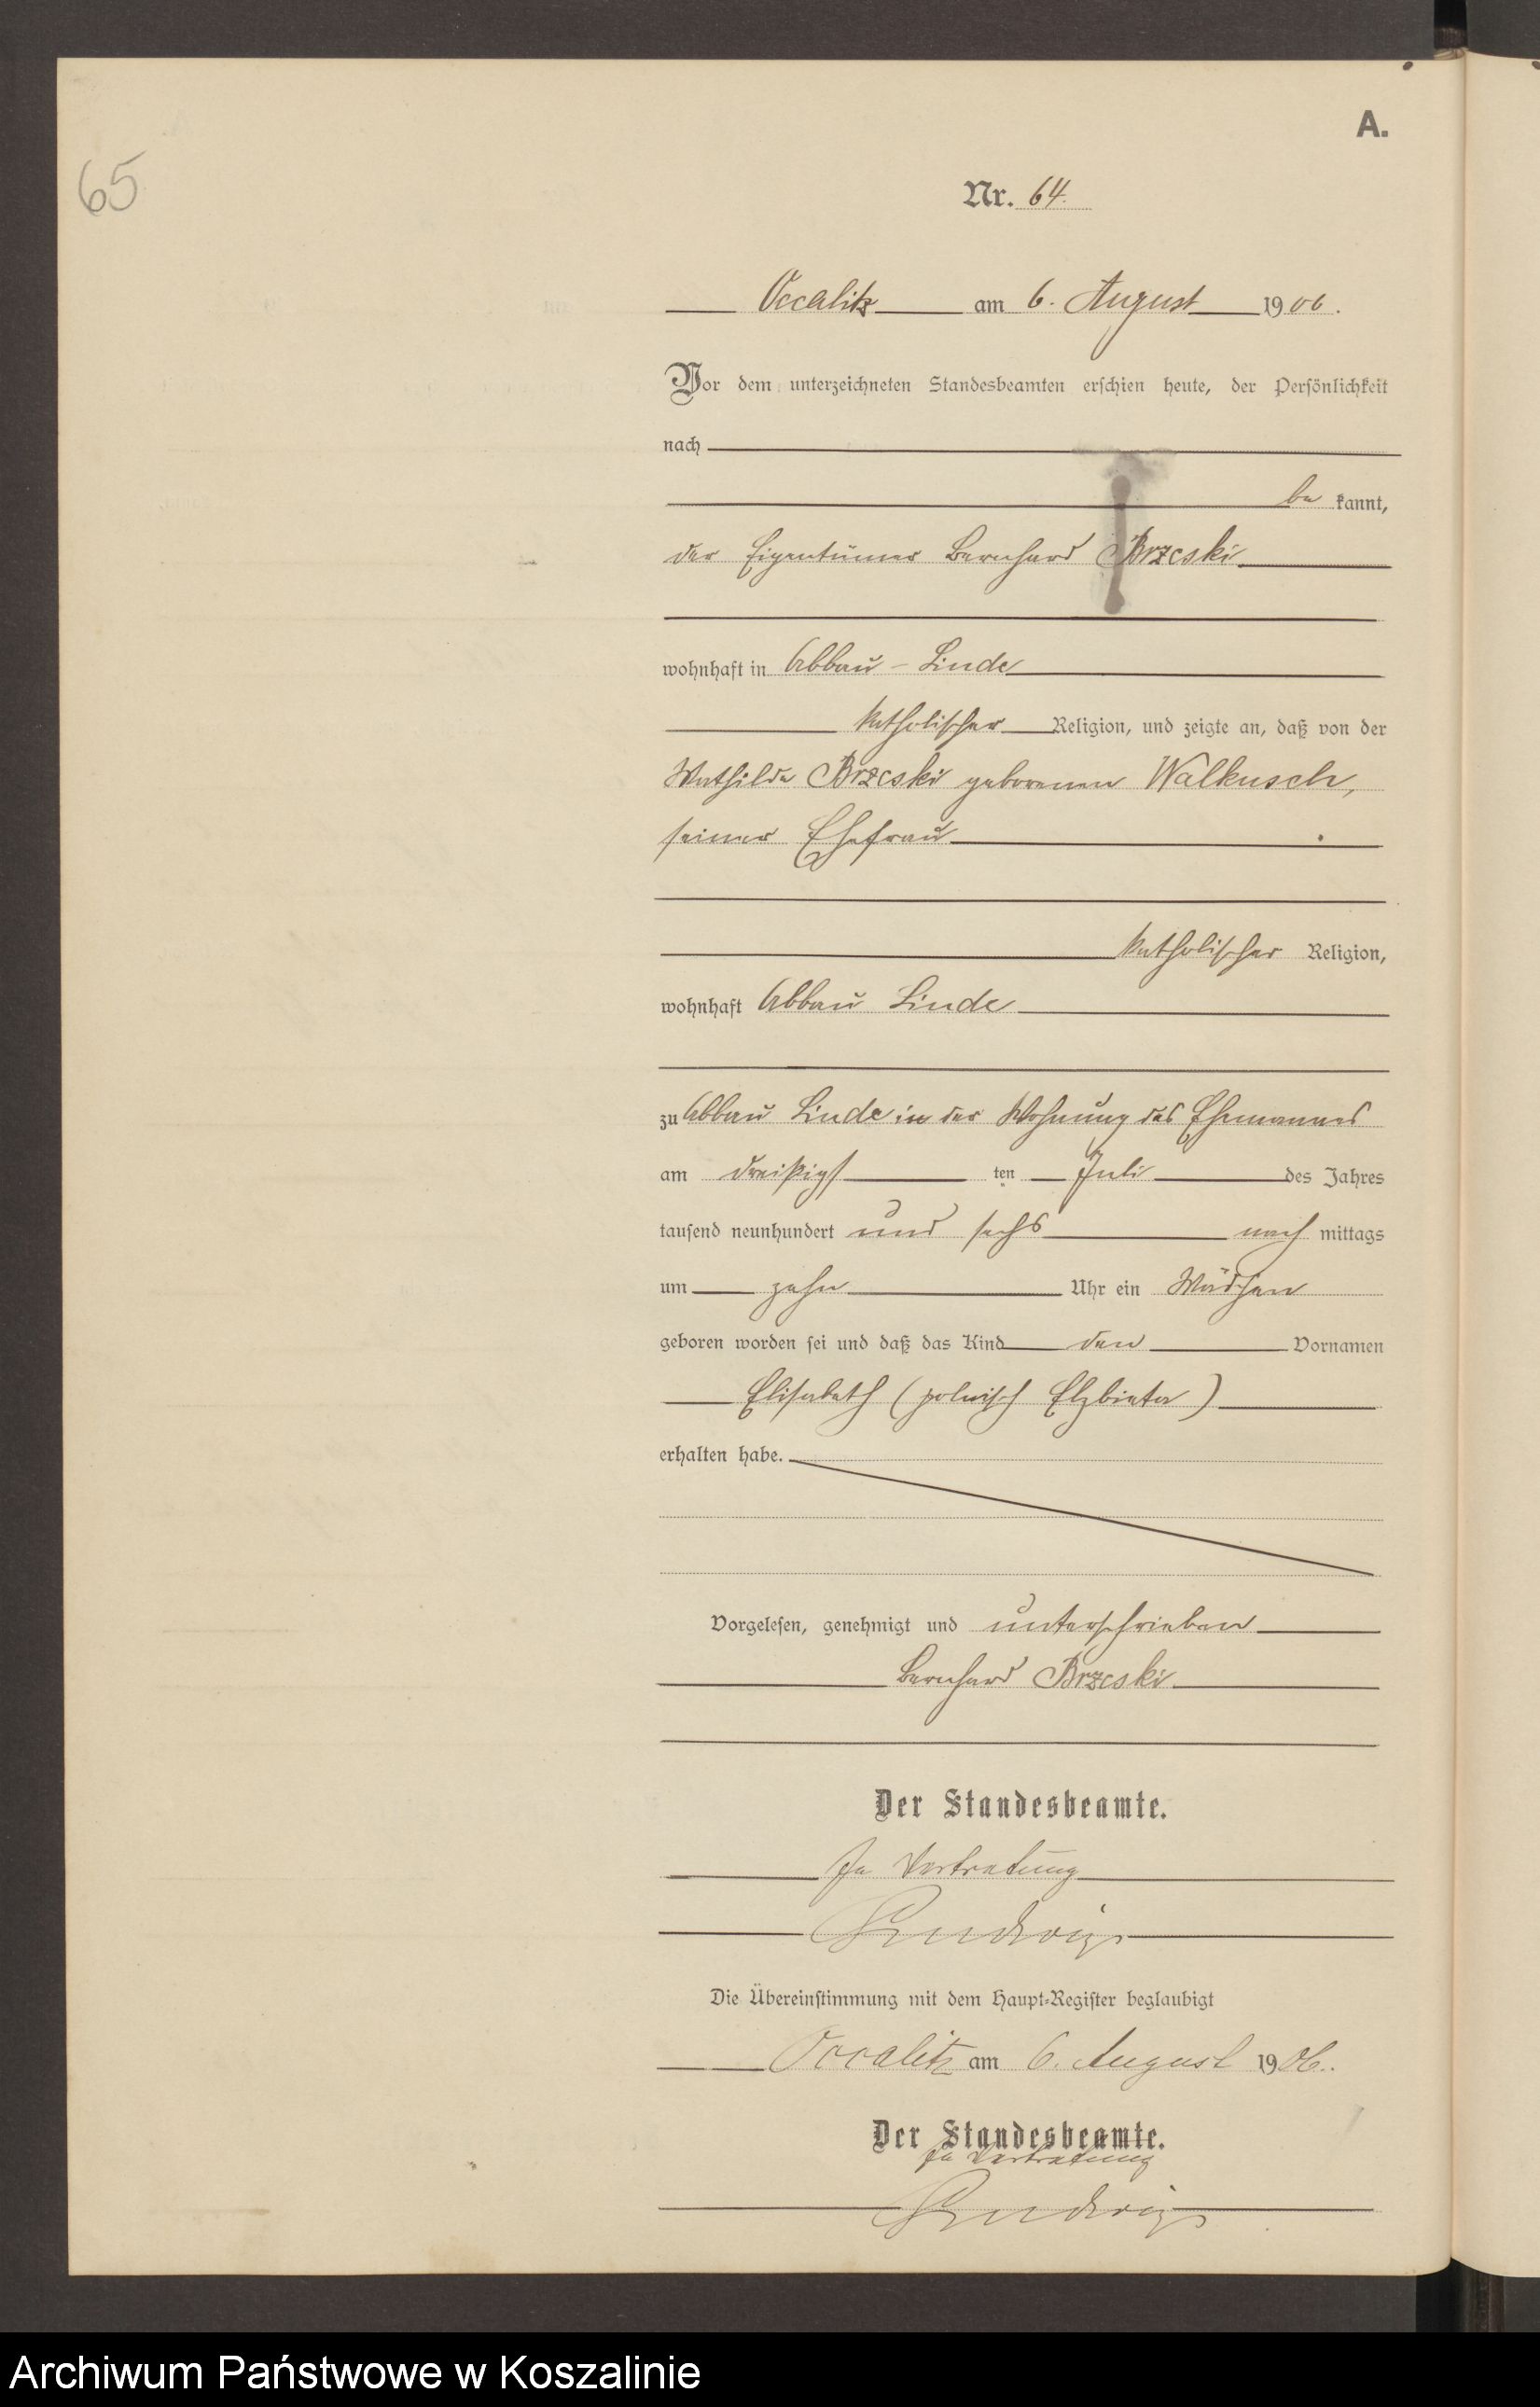 A.
65
Nr. 64.
Occalitz am 6. August 1906.
Vor dem unterzeichneten Standesbeamten erschien heute, der Persönlichkeit
nach
be kannt,
der Eigentümer Bernhard Brzeski
wohnhaft in Abbau - Linde
katholischer Religion, und zeigte an, daß von der
Mathilde Brzeski geborenen Walkusch,
seiner Ehefrau
katholischer Religion,
wohnhaft Abbau Linde
zu Abbau Linde in der Wohnung des Ehemannes
am dreißigs ten Juli des Jahres
tausend neunhundert und sechs nach mittags
um zehn Uhr ein Mädchen
geboren worden sei und daß das Kind den Vornamen
Elisabeth (polnisch Elzbieta)
erhalten habe.
Vorgelesen, genehmigt und unterschrieben
Bernhard Brzeski
Der Standesbeamte.
In Vertretung
Die Übereinstimmung mit dem Haupt-Register beglaubigt
Occalitz am 6. August 1906.
Der Standesbeamte.
In Vertretung
Archiwum Państwowe w Koszalinie